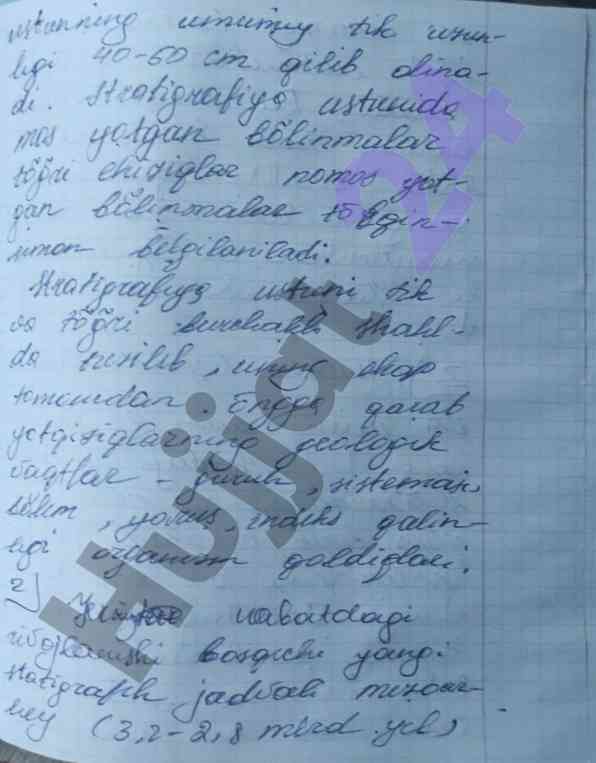 ustunning umumiy tik uzun-
ligi 40-60 cm qilib olina-
di. Stratigrafiya ustunida
mos yotgan bõlinmalar
tõg̃ri chiziqlar nomos yot-
gan bõlinmalar tõlqin-
simon belgilaniladi.
Stratigrafiya ustuni tik
va tõg̃ri burchakli shakl-
da tuzilib, uning chap
tomondan. Õngga qarab
yotqiziqlarning geologik
vaqtlar - guruh, sistemasi,
bõlim, yarus, indeks qalin-
ligi organizm qoldiqlari.
2)
navbatdagi
rivojlanishi bosqichi yangi
statigrafik jadvali mezoar-
hey (3,2-2,8 mlrd yil)
Hujjat 24